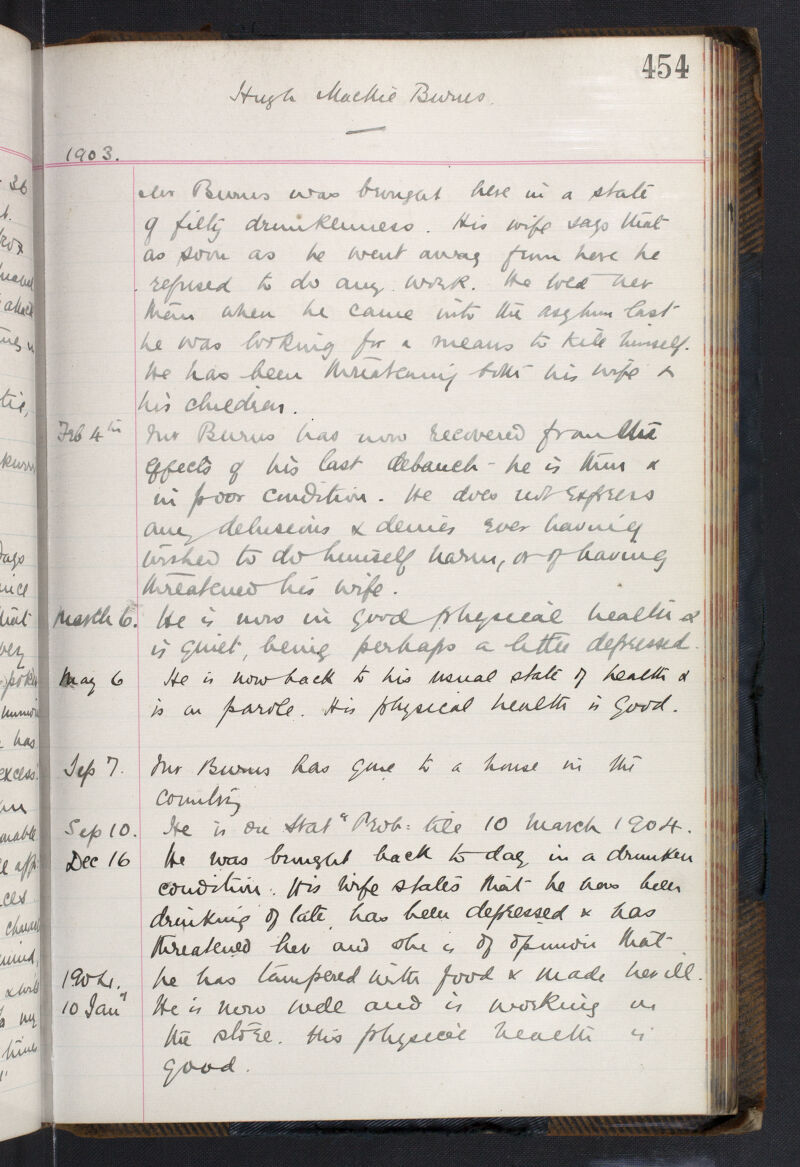 454
Hugh Mackie Burns.
1903.
Mr Burns was brought here in a state
of filthy drunkenness. His wife says that
as soon as he went away from here he
refused to do any work. He told her
then when he came into the asylum last
he was looking for a means to kill himself.
He has been threatening both his wife &
his children.
Feb 4th Mr Burns has now recovered from the
effects of his last debauch - he is thin &
in poor condition. He does not express
any delusions & denies ever having
wished to do himself harm, or of having
threatened his wife.
March 6. He is now in good physical health &
is quiet, being perhaps a little depressed.
May 6 He is now back to his usual state of health &
is on parole. His physical health is good.
Sep 7. Mr Burns has gone to a house in the
country
Sep 10. He is on Stat" Prob: till 10 March 1904.
Dec 16 He was brought back to day in a drunken
condition. His wife states that he has been
drinking of late, has been depressed & has
threatened her and she is of opinion that
1904. he has tampered with food & made her ill.
10 Jany He is now well and is working in
the store. His physical health is
good.
36
has
excess